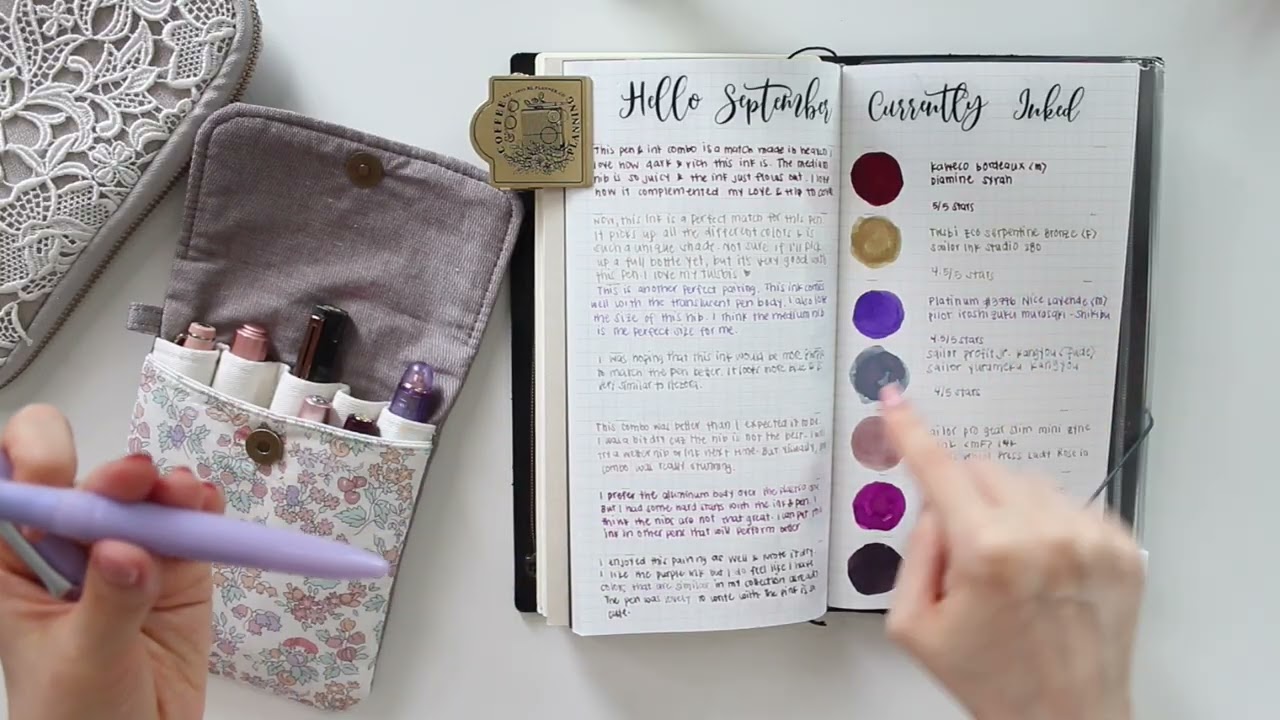 COFFEE
PLANNING
Hello September
This pen & ink combo is a match made in heaven I
love how dark & rich this ink is. The medium
nib is so juicy & the ink just flows out. I love
how it complemented my Love & trip to
Now, this ink is a perfect match for this pen.
It picks up all the different colors & is
such a unique shade. Not sure if I'll pick
up a full bottle yet, but it's very good with
this pen. I love my TWSBIS ♥
This is another perfect pairing. This ink comes
well with the translucent pen body. I also love
the size of this nib. I think the medium nib
is the perfect size for me.
I was hoping that this ink would be more
to match the pen better. It looks more
very similar to
This combo was better than I expected it to be.
I was a bit dry cuz the nib is not the best. I will
try a wetter nib or ink next time. But
combo was really stunning.
I prefer the aluminum body over the
But I had some hard starts with the ink & pen. I
think the nibs are not that great. I can put this
ink in other pens that will perform
I enjoyed this pairing as well & wrote it dry.
I like the purple ink but I do feel like I have
colors that are similar in my collection
The pen was lovely to write with & the pink is so
cute.
Currently Inked
Kaweco bordeaux (M)
Diamine Syrah
5/5 stars
TWSBI ECO serpentine Bronze (F)
sailor ink studio 280
4.5/5 stars
Platinum #3776 Nice Lavende (M)
pilot iroshizuku murasaki-shikibu
4.5/5 stars
sailor profit jr. Kangyou (Fude)
sailor yurameku Kangyou
4/5 stars
sailor pro gear slim mini
14k
Press Lady Rose